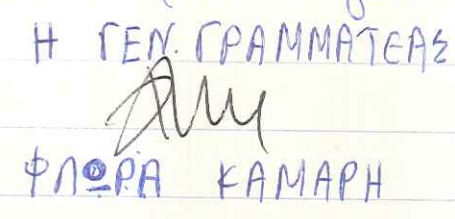 Η ΓΕΝ. ΓΡΑΜΜΑΤΕΑΣ
ΦΛΩΡΑ ΚΑΜΑΡΗ